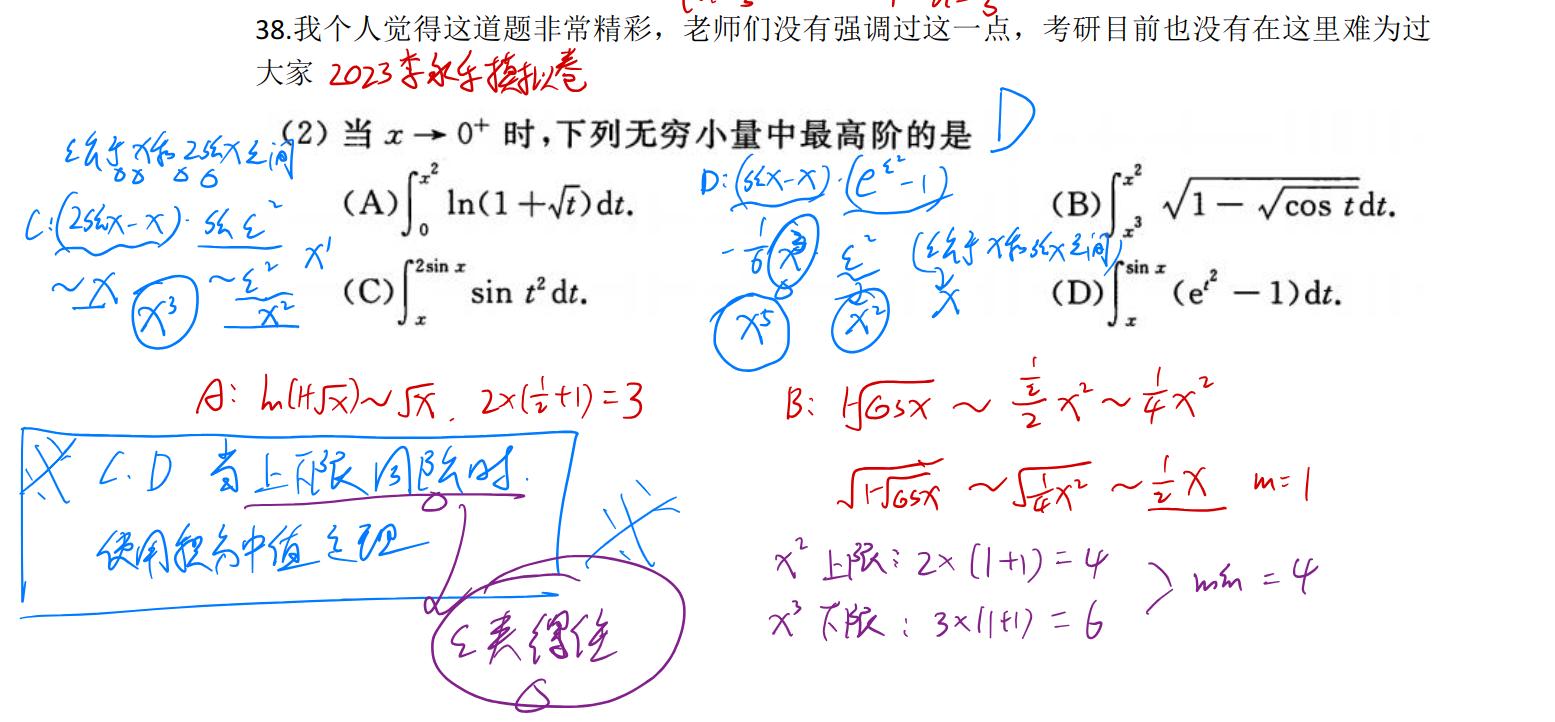 38.我个人觉得这道题非常精彩，老师们没有强调过这一点，考研目前也没有在这里难为过
大家 2023李永乐模拟卷
(2) 当 x → 0⁺ 时,下列无穷小量中最高阶的是 D
ξ介于x和2sinx之间
(A) ∫₀^{x²} ln(1+√t)dt.
(B) ∫_{x³}^{x²} √(1−√(cos t)) dt.
(C) ∫_x^{2sin x} sin t² dt.
(D) ∫_x^{sin x} (e^{t²} − 1)dt.
C:(2sinx−x)· sin ξ²
~x ~ξ² x¹
x³ x²
D:(sinx−x)·(e^{ξ²}−1)
−1/6 x³ ξ² (ξ介于x和sinx之间)
x⁵ x² x
A: ln(1+√x)~√x. 2×(1/2+1)=3
B: 1−√cosx ~ (1/2)/2 x² ~ 1/4 x²
√(1−√cosx) ~ √(1/4 x²) ~ 1/2 x m=1
x² 上限: 2×(1+1)=4
x³ 下限: 3×(1+1)=6
min = 4
C.D 当上下限同阶时.
使用积分中值定理
ξ夹得住